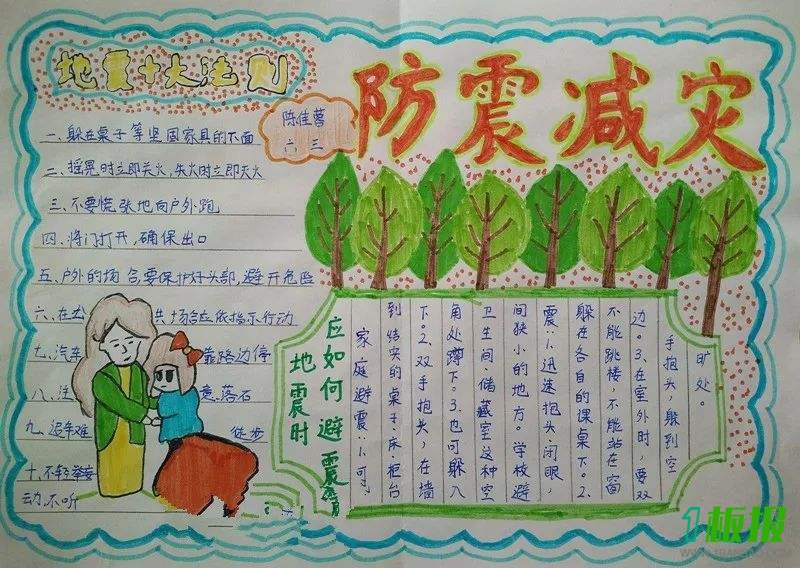 地震十大法则
陈佳
六 三
防震减灾
一、躲在桌子等坚固家具的下面
二、摇晃时立即关火,失火时立即灭火
三、不要慌张地向户外跑
四、将门打开,确保出口
五、户外的场合要保护好头部,避开危险
六、在 共场合应依指示行动
七、汽车 靠路边停
八、注 意、落石
九、避难 徒步
十、不轻举妄
动,不听
地震时
应如何避震
家庭避震:1、可
到结实的桌子、床柜台
下。2、双手抱头,在墙
角处蹲下。3、也可躲入
卫生间、储藏室这种空
间狭小的地方。学校避
震:1、迅速抱头、闭眼,
躲在各自的课桌下。2、
不能跳楼,不能站在窗
边。3、在室外时,要双
手抱头,躲到空
旷处。
1板报
WWW.1BANBAO.COM